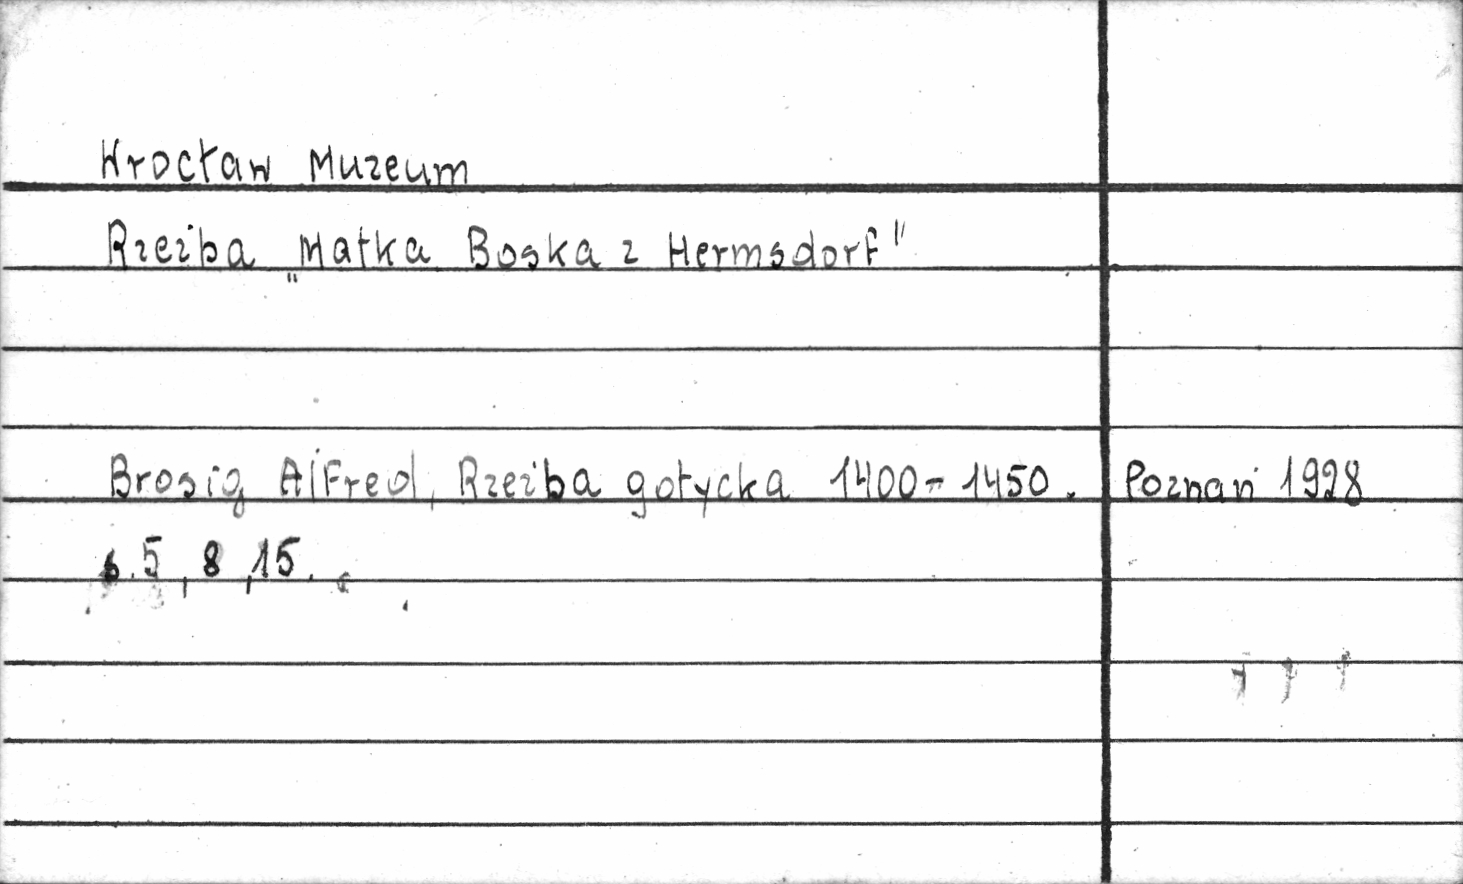 Wrocław Muzeum
Rzeźba „Matka Boska z Hermsdorf"
Brosig Alfred, Rzeźba gotycka 1400-1450. Poznań 1928
s. 5, 8, 15.